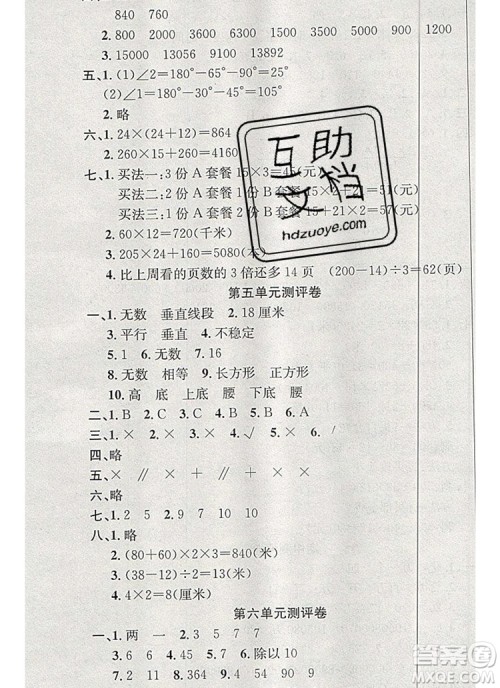 840 760
2. 15000 13056 8800 2000 3600 1500 5000 900 1200
五、1. (1)∠2=180°-65°-90°=25°
(2)∠1=180°-90°-45°=45°
2. 略
六、1. 24×(24+12)=864
2. 260×15-12=
七、1. 买法一:3 份 A 套餐 15×3=45(元)
买法二:
买法三:
2. 60×12=720(千米)
3. 205×24+160=5080(元)
4. 比上周看的页数的 3 倍还多 14 页 (200-14)÷3=62(页)
第五单元测评卷
一、1. 无数 垂直线段 2. 18 厘米
3. 平行 垂直 4. 不稳定
5. 1 6. 无数 7. 16
8. 无数 相等 9. 长方形 正方形
10. 高 底 上底 腰 下底 腰
二、1. B 2. C 3. C 4. B 5. B
三、1. × 2. × 3. × 4. √ 5. √
四、略
五、× ∥ × + ∥ ×
六、略
七、1. 2 5 2. 9 7 9 4
八、1. 略
2. (80+60)×2×3=840(米)
3. (38-12)÷2=13(厘米)
4. 2
第六单元测评卷
一、1. 两 一 2. 3 5 7 7
3. 6 6 4. 6 5. 除以 10
6. 2 7. 2 8. 364 9. 4 54 90 9
互助文档
hdzuoye.com
答案圈
MXQE.COM